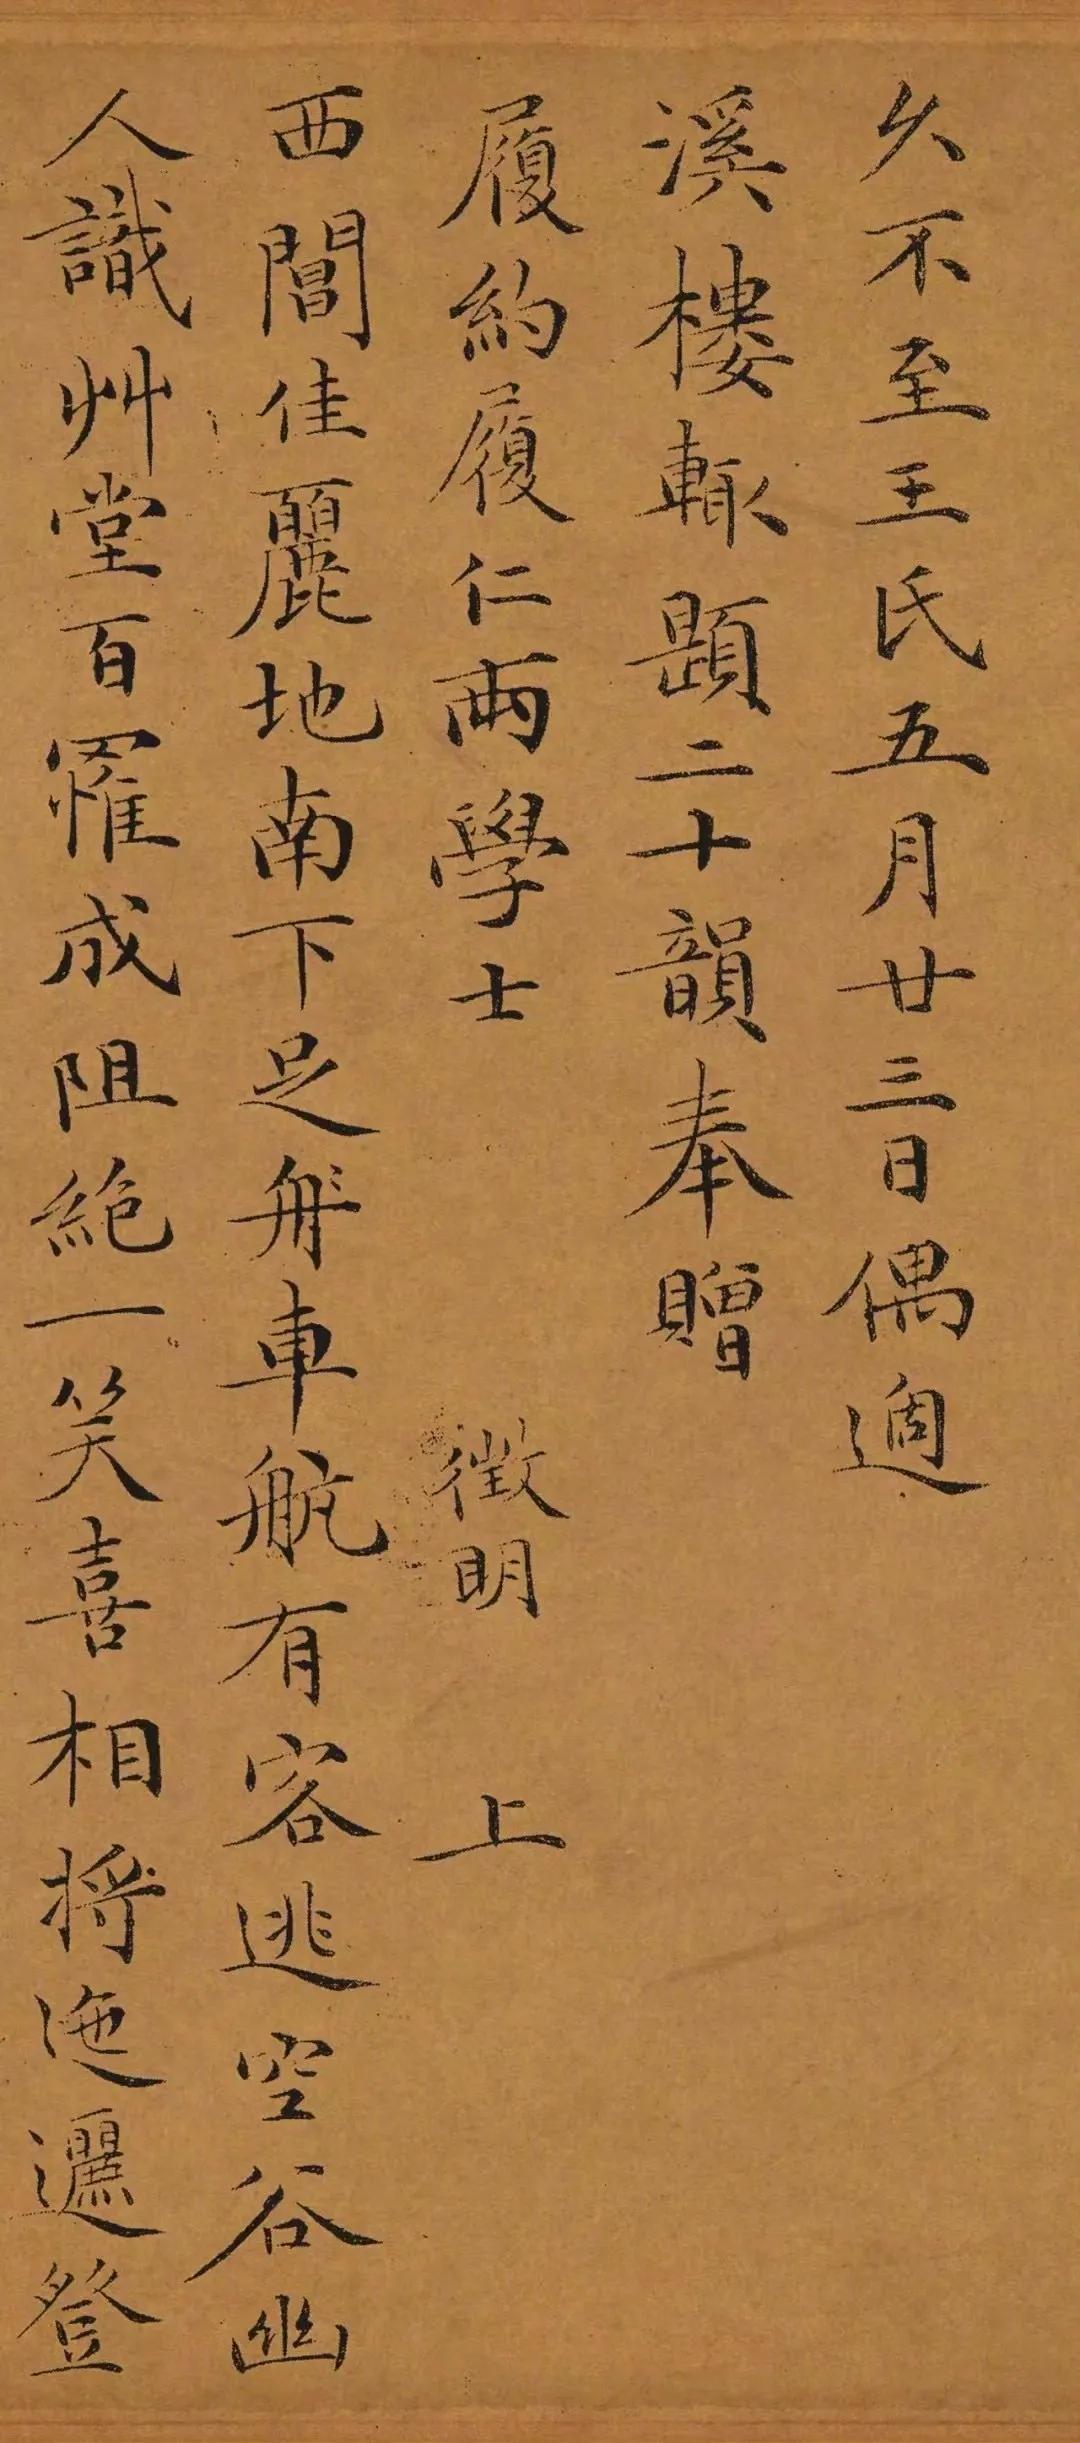 久不至王氏五月廿三日偶過
溪樓輒題二十韻奉贈
履約履仁兩學士
徵明 上
西閶佳麗地南下足舟車航有客逃空谷幽
人識艸堂百罹成阻絶一笑喜相將迤邐登